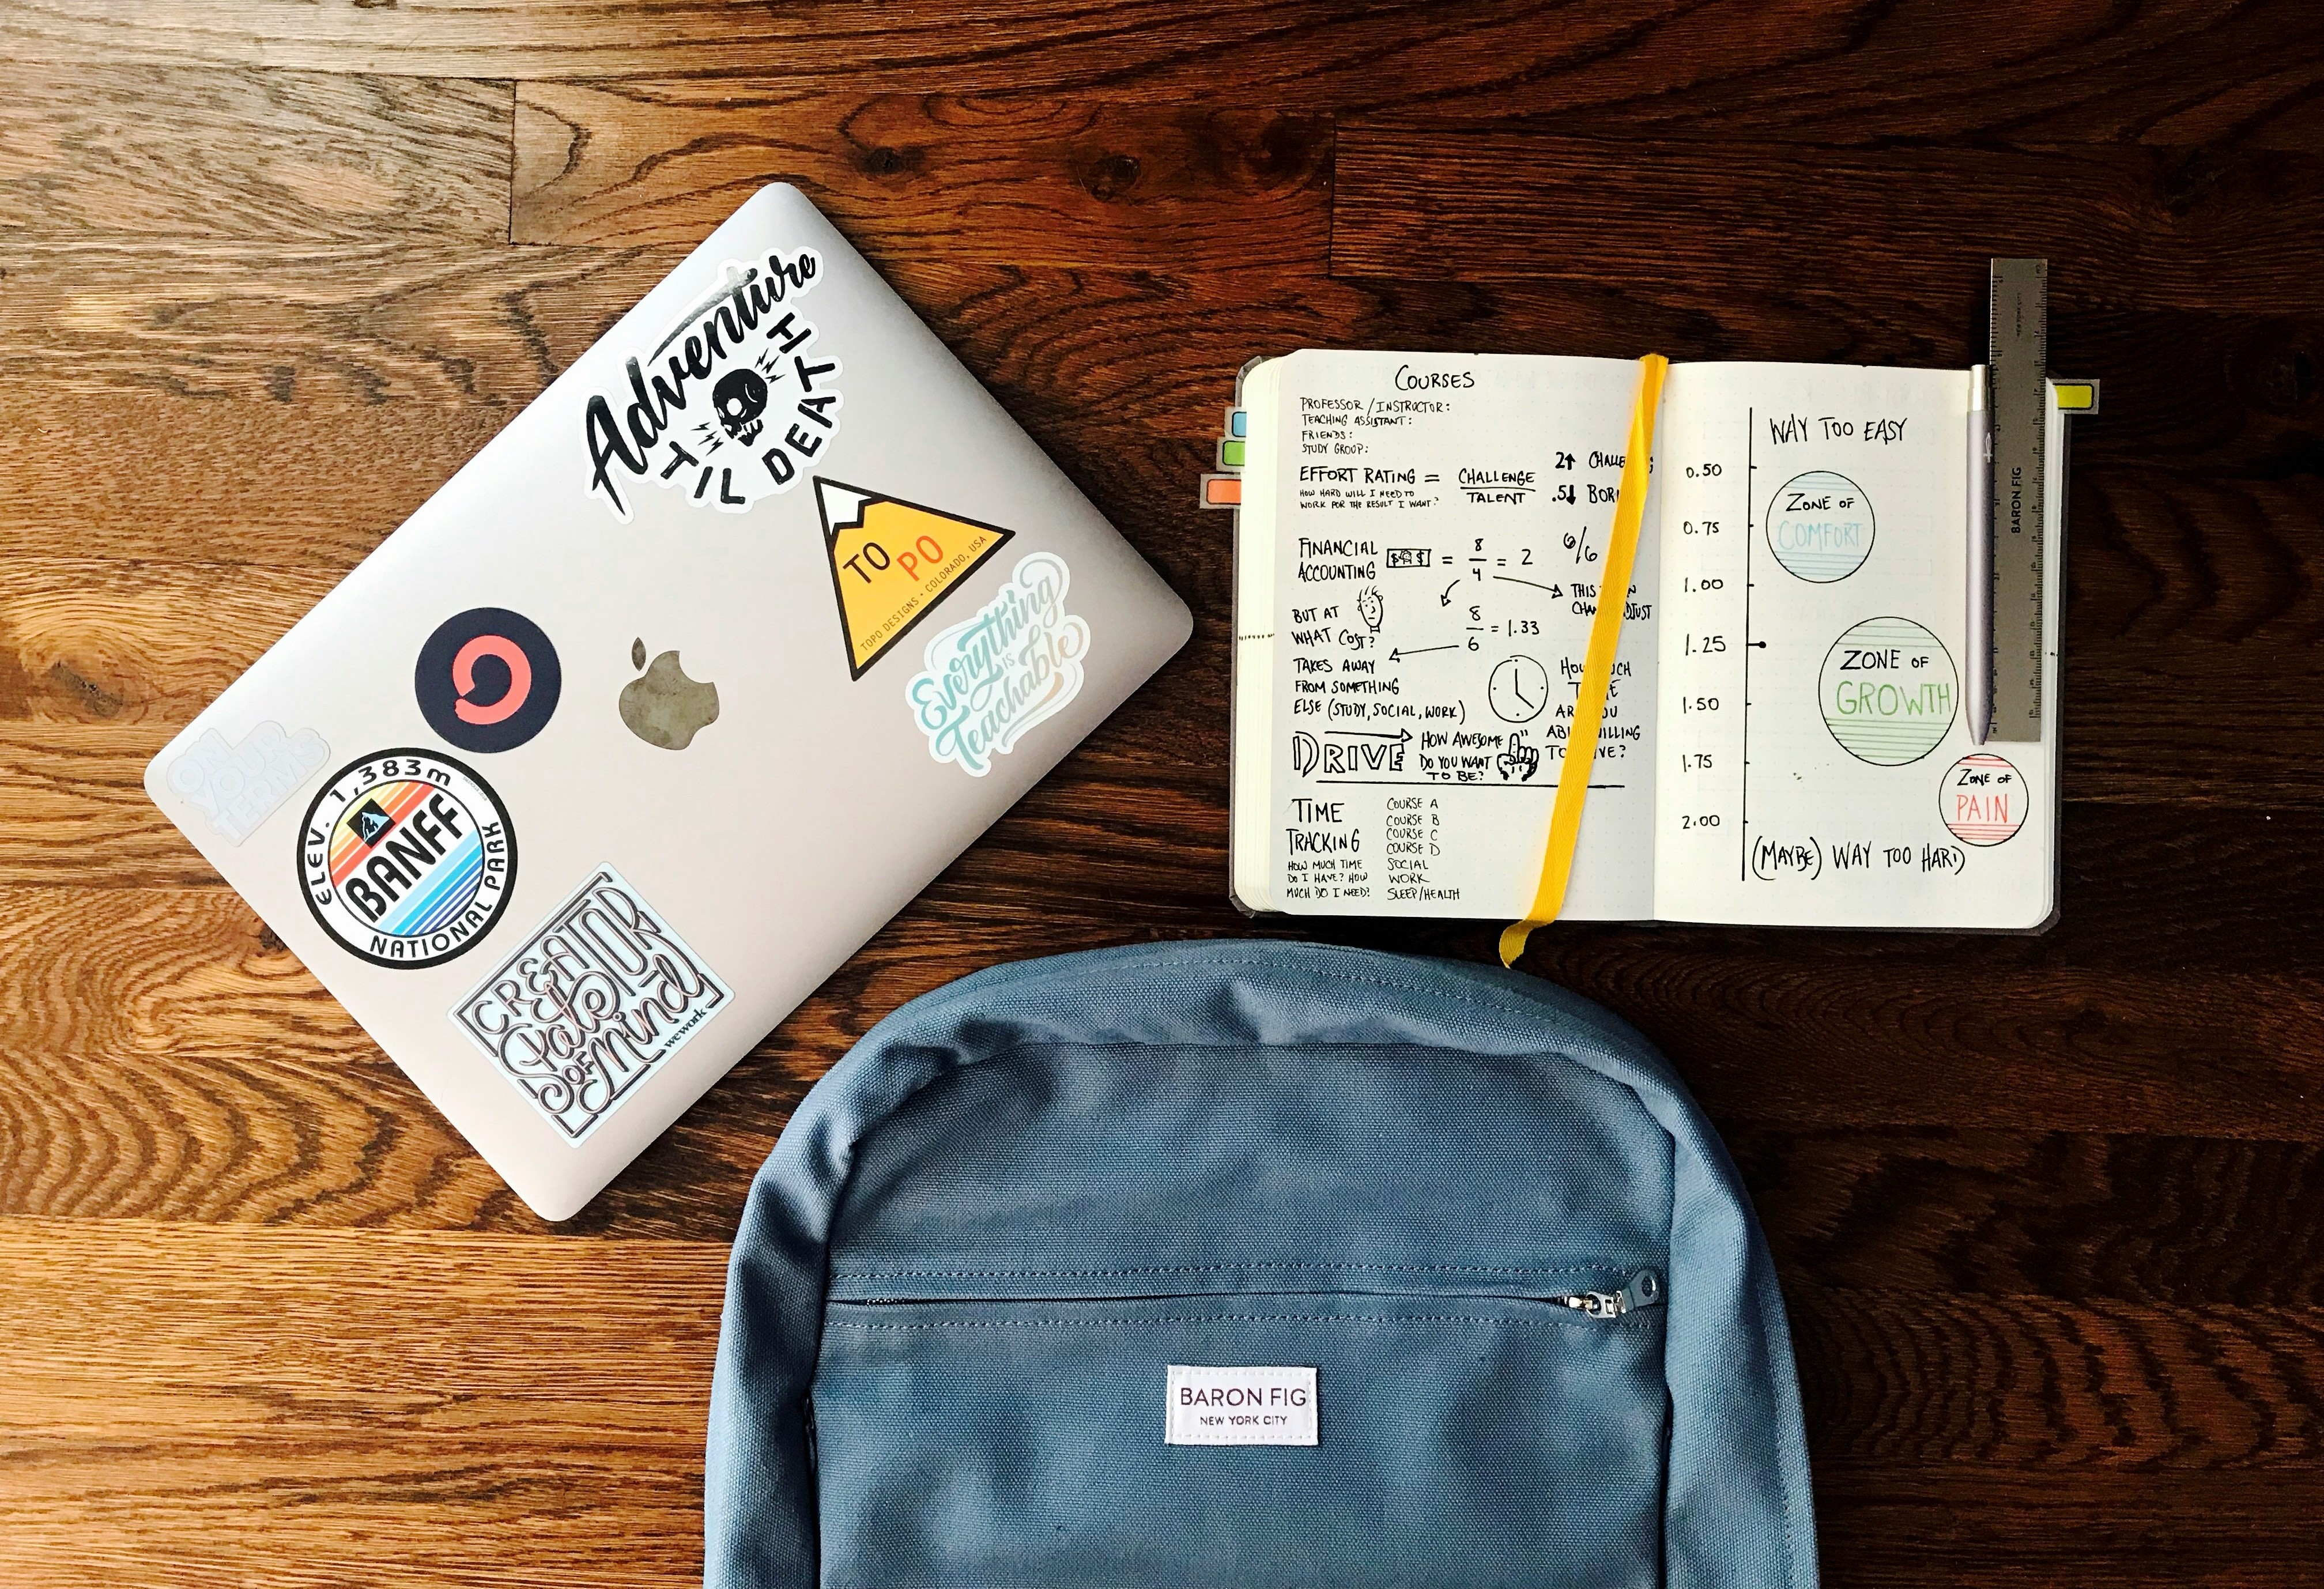 Adventure
TIL DEATH
TO PO
TOPO DESIGNS · COLORADO, USA
Everything
IS
Teachable
ON
YOUR
TERMS
ELEV. 1,383m
BANFF
NATIONAL PARK
CREATOR
State
OF
Mind
wework
COURSES
PROFESSOR/INSTRUCTOR:
TEACHING ASSISTANT:
FRIENDS:
STUDY GROUP:
EFFORT RATING = CHALLENGE
TALENT
HOW HARD WILL I NEED TO
WORK FOR THE RESULT I WANT?
2↑
.5↓
FINANCIAL
ACCOUNTING
$ $ = 8/4 = 2
6/6
THIS
BUT AT
WHAT COST?
8/6 = 1.33
TAKES AWAY
FROM SOMETHING
ELSE (STUDY, SOCIAL, WORK)
DRIVE
HOW AWESOME
DO YOU WANT
TO BE?
TIME
TRACKING
HOW MUCH TIME
DO I HAVE? HOW
MUCH DO I NEED?
COURSE A
COURSE B
COURSE C
COURSE D
SOCIAL
WORK
SLEEP/HEALTH
WAY TOO EASY
0.50
0.75
1.00
1.25
1.50
1.75
2.00
ZONE OF
COMFORT
ZONE OF
GROWTH
ZONE OF
PAIN
(MAYBE) WAY TOO HARD
BARON FIG
BARON FIG
NEW YORK CITY